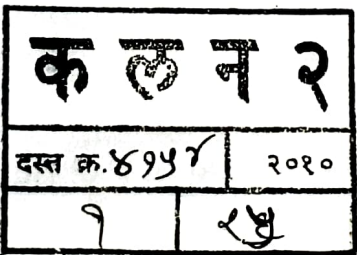 क ल न २
दस्त क्र. ४१५४ २०१०
१